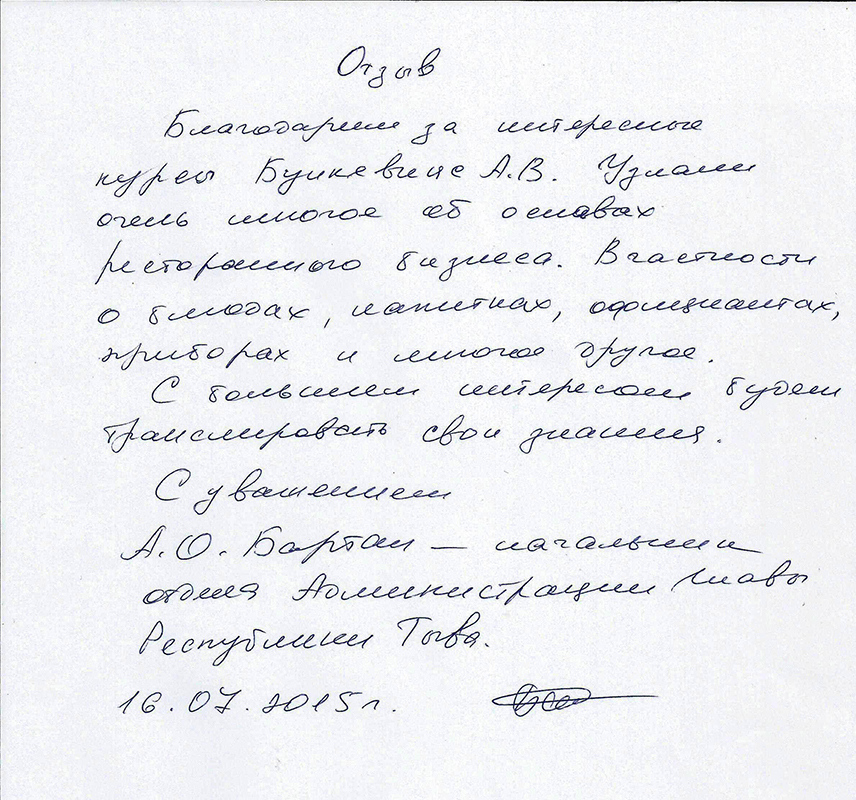 Отзыв
Благодарим за интересные
курсы Булкевича А.В. Узнали
очень многое об основах
ресторанного бизнеса. В частности
о блюдах, напитках, официантах,
приборах и многое другое.
С большим интересом будем
транслировать свои знания.
С уважением
А.О. Бартан — начальник
отдела Администрации Главы
Республики Тыва.
16.07.2015г.